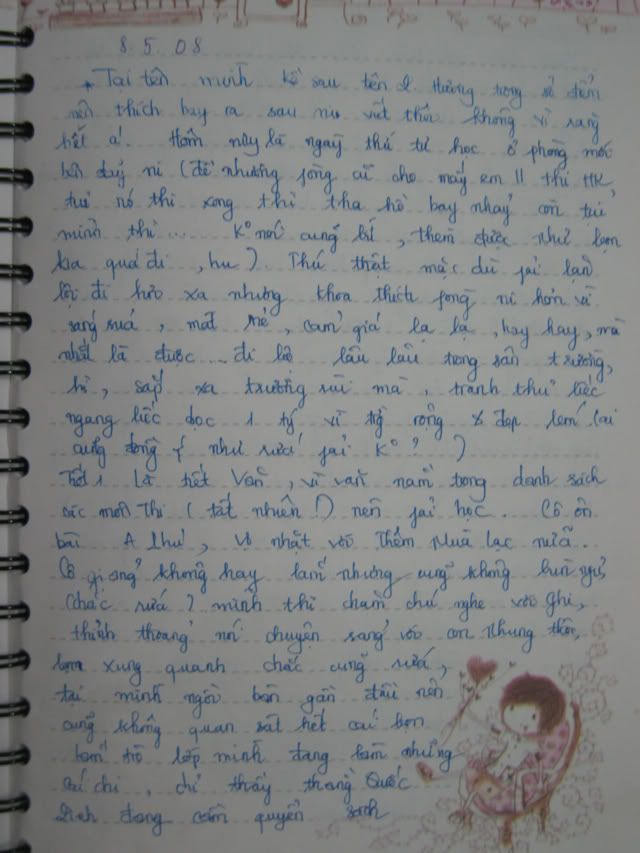 8.5.08
* Tại tên mình kề sau tên L. Hương trong sổ điểm
nên thích bay ra sau níu viết thứ không vì sang
hết á! Hôm nay là ngày thứ tư học ở phòng mới
bên dãy ni (để nhường fòng cũ cho mấy em 11 thi HK,
tụi nó thi xong thì tha hồ bay nhảy còn tụi
mình thì... K° nói cũng bít, thèm được như bọn
kia quá đi, hu). Thú thật mặc dù fải lặn
lội đi hơi xa nhưng khoa thích fòng ni hơn vì
sáng sủa, mát mẻ, cảm giá lạ lạ, hay hay, mà
nhất là được... đi bộ lâu lâu trong sân trường,
hì, sắp xa trường rùi mà, tranh thủ liếc
ngang liếc dọc 1 tý vì tg rộng & đẹp lém (ai
cũng đồng ý như rứa fải K°?)
Tiết 1 là tiết Văn, vì văn nằm trong danh sách
các môn thi (tất nhiên!) nên fải học. Cô ôn
bài A Phủ, Vợ nhặt với Thềm Mùa lạc nữa.
Cô giảng không hay lắm nhưng cũng không bùn ngủ
(chắc rứa) mình thì chăm chú nghe với ghi,
thỉnh thoảng nói chuyện sang với con Nhung thôi,
bọn xung quanh chắc cũng rứa,
tại mình ngồi bàn gần đầu nên
cũng không quan sát hết cả bọn
trong lớp mình đang làm những
cái chi, chỉ thấy thằng Quốc
đang cầm quyển sách